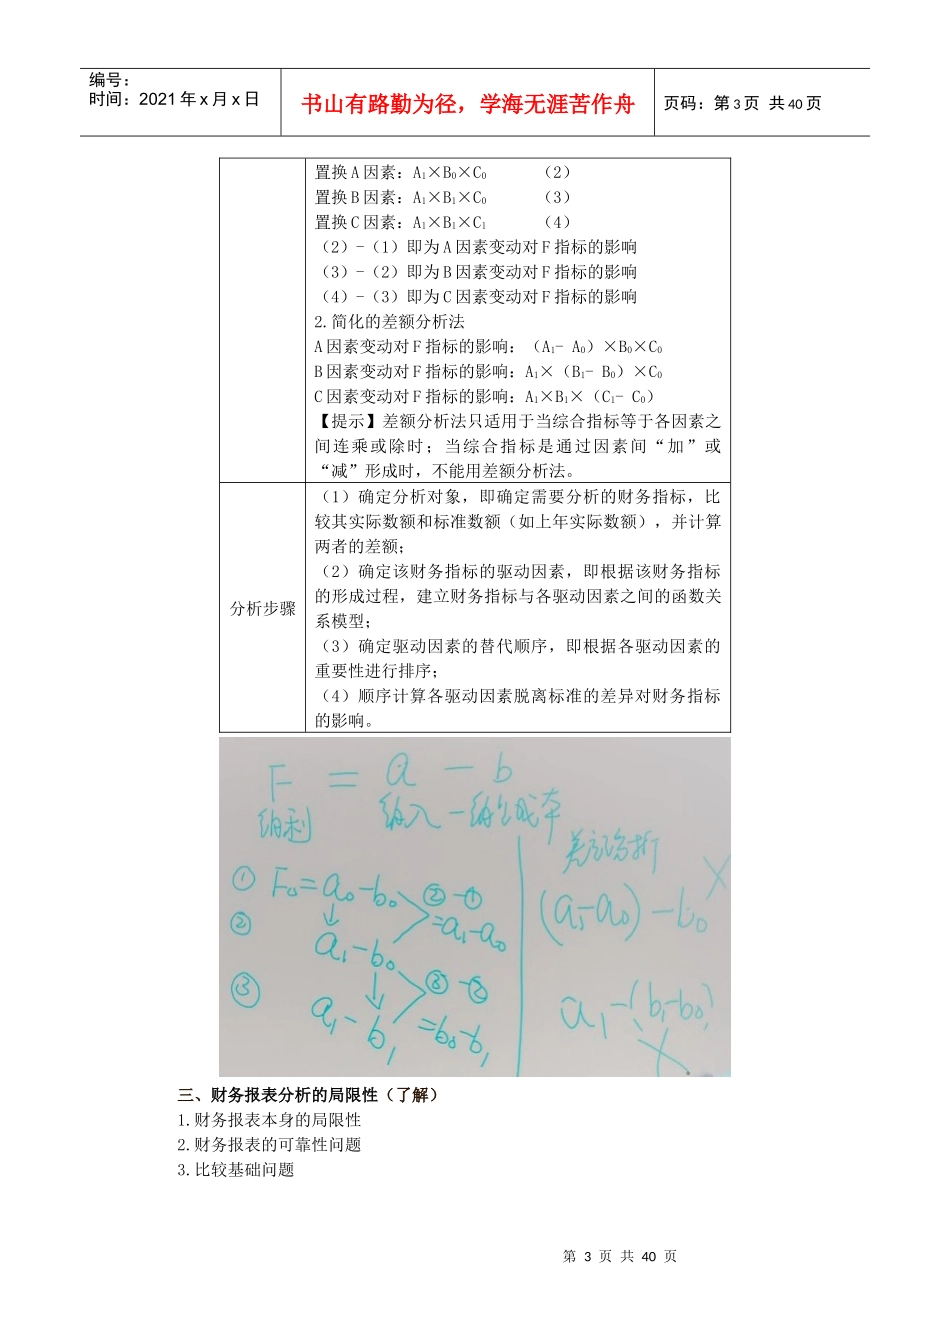 编号：
时间：2021年x月x日
书山有路勤为径，学海无涯苦作舟
页码：第3页 共40页
置换A因素：A₁×B₀×C₀ （2）
置换B因素：A₁×B₁×C₀ （3）
置换C因素：A₁×B₁×C₁ （4）
（2）-（1）即为A因素变动对F指标的影响
（3）-（2）即为B因素变动对F指标的影响
（4）-（3）即为C因素变动对F指标的影响
2.简化的差额分析法
A因素变动对F指标的影响：（A₁- A₀）×B₀×C₀
B因素变动对F指标的影响：A₁×（B₁- B₀）×C₀
C因素变动对F指标的影响：A₁×B₁×（C₁- C₀）
【提示】差额分析法只适用于当综合指标等于各因素之
间连乘或除时；当综合指标是通过因素间“加”或
“减”形成时，不能用差额分析法。
分析步骤
（1）确定分析对象，即确定需要分析的财务指标，比
较其实际数额和标准数额（如上年实际数额），并计算
两者的差额；
（2）确定该财务指标的驱动因素，即根据该财务指标
的形成过程，建立财务指标与各驱动因素之间的函数关
系模型；
（3）确定驱动因素的替代顺序，即根据各驱动因素的
重要性进行排序；
（4）顺序计算各驱动因素脱离标准的差异对财务指标
的影响。
F = a - b
① F₀=a₀-b₀ ②-①
=a₁-a₀
② a₁-b₀
③-②
③ a₁-b₁ =b₀-b₁
(a₁-a₀)-b₀
a₁-(b₁-b₀)
三、财务报表分析的局限性（了解）
1.财务报表本身的局限性
2.财务报表的可靠性问题
3.比较基础问题
第 3 页 共 40 页